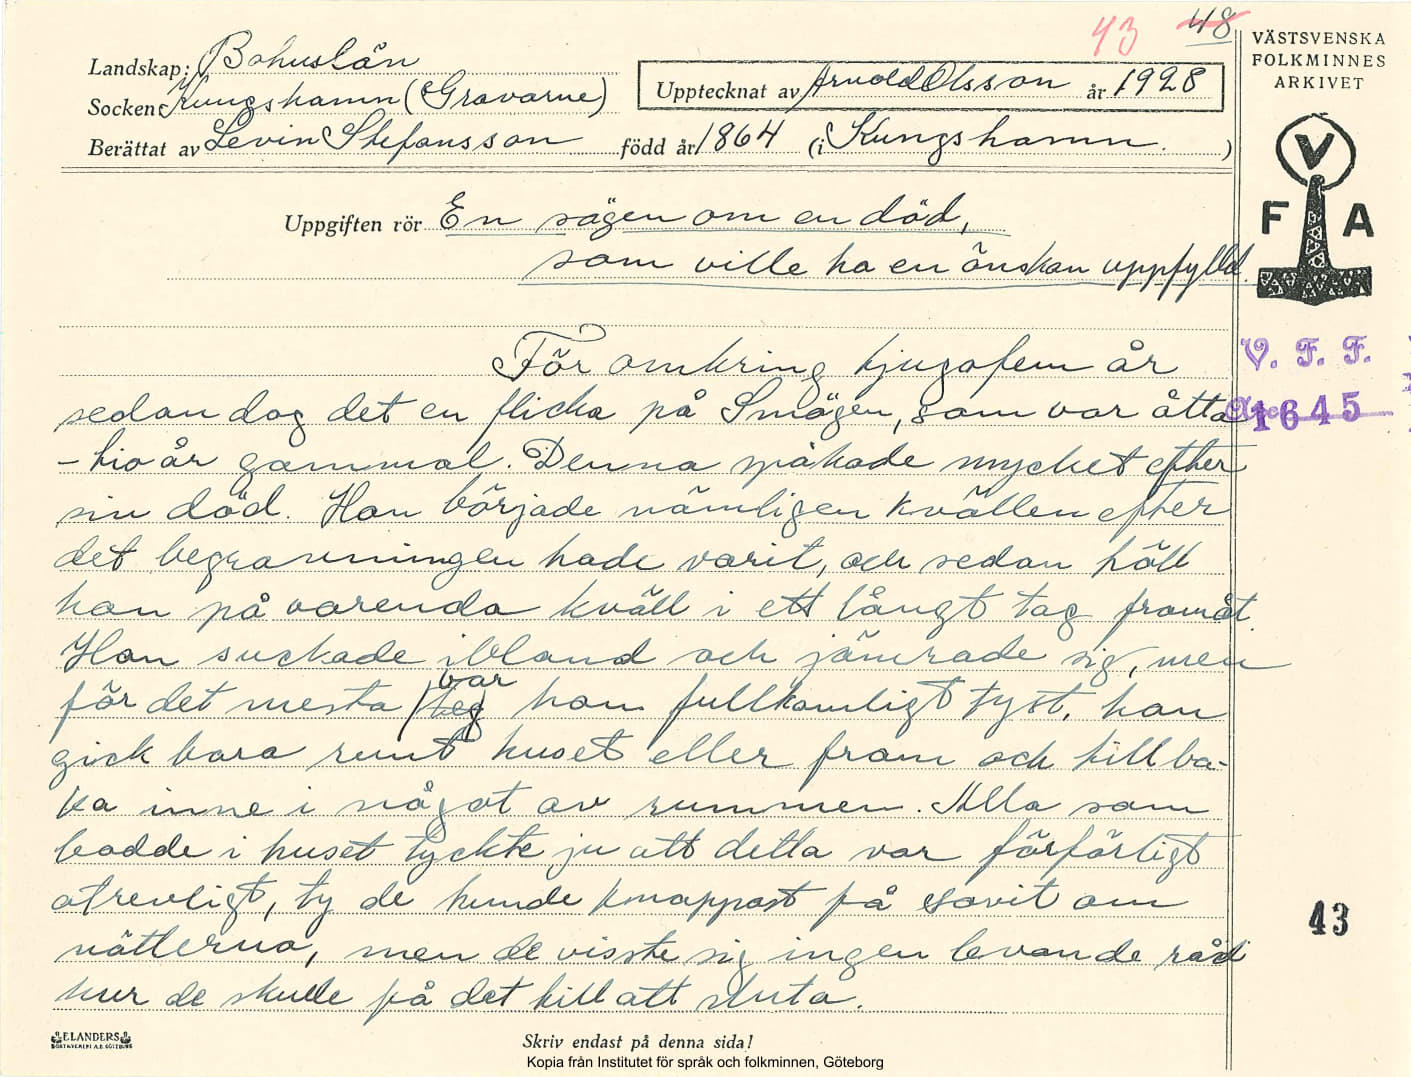 43 48
VÄSTSVENSKA
FOLKMINNES
ARKIVET
Landskap: Bohuslän
Socken: Kungshamn (Gravarne)
Upptecknat av Arnold Olsson år 1928
Berättat av Levin Stefansson född år 1864 (i Kungshamn.)
V
F A
Uppgiften rör En sägen om en död,
som ville ha en önskan uppfylld.
V. F. F.
1645
För omkring tjugofem år
sedan dog det en flicka på Smögen, som var åtta
-tio år gammal. Denna spökade mycket efter
sin död. Hon började nämligen kvällen efter
det begravningen hade varit, och sedan höll
hon på varenda kväll i ett långt tag framåt.
Hon suckade ibland och jämrade sig, men
för det mesta var hon fullkomligt tyst, hon
gick bara runt huset eller fram och tillba-
ka inne i något av rummen. Alla som
bodde i huset tyckte ju att detta var förfärligt
otrevligt, ty de kunde knappast få sovit om
nätterna, men de visste sig ingen levande råd
hur de skulle få det till att sluta.
43
ELANDERS
BOKTRYCKERI A.B. GÖTEBORG
Skriv endast på denna sida!
Kopia från Institutet för språk och folkminnen, Göteborg